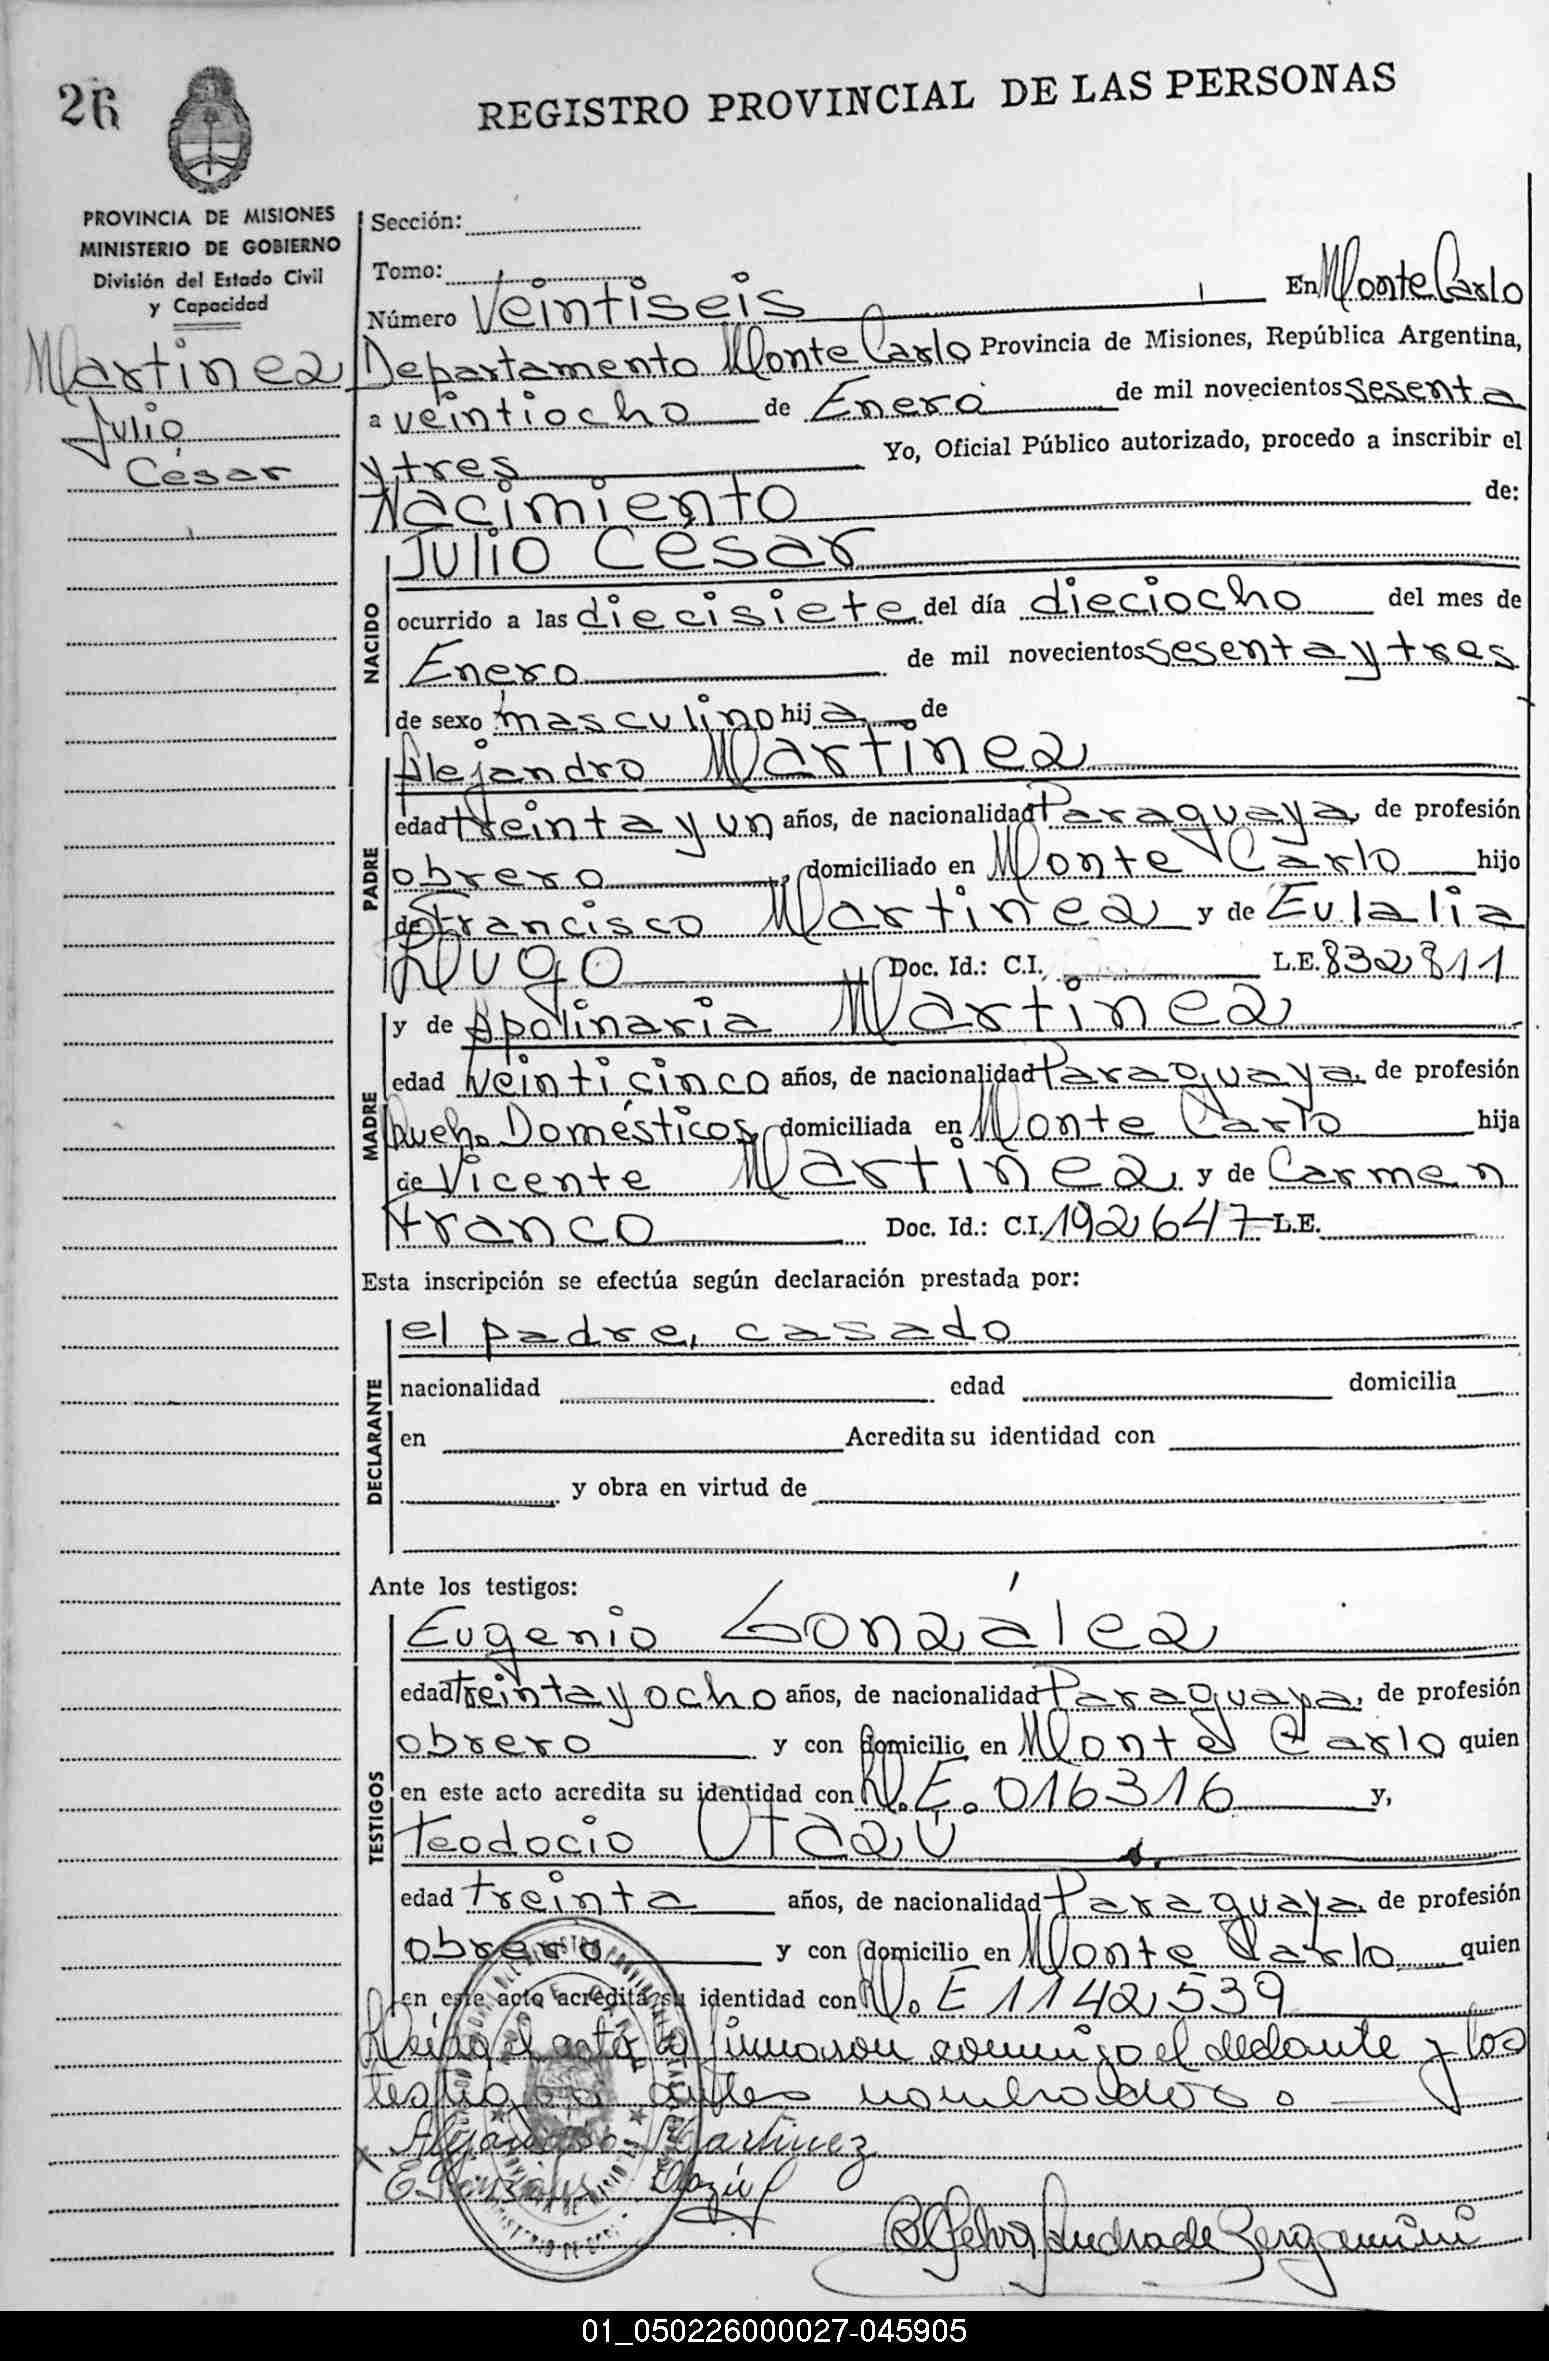 26
REGISTRO PROVINCIAL DE LAS PERSONAS
PROVINCIA DE MISIONES
MINISTERIO DE GOBIERNO
División del Estado Civil
y Capacidad
Martinez
Julio
César
Sección:
Tomo:
Número Veintiseis En Monte Carlo
Departamento Monte Carlo Provincia de Misiones, República Argentina,
a veintiocho de Enero de mil novecientos sesenta
y tres Yo, Oficial Público autorizado, procedo a inscribir el
Nacimiento de:
NACIDO
Julio César
ocurrido a las diecisiete del día dieciocho del mes de
Enero de mil novecientos sesenta y tres
de sexo masculino hija de
PADRE
Alejandro Martinez
edad treinta y un años, de nacionalidad Paraguaya, de profesión
obrero, domiciliado en Monte Carlo hijo
de Francisco Martinez y de Eulalia
Lugo Doc. Id.: C.I. L.E. 832811
MADRE
y de Apolinaria Martinez
edad veinticinco años, de nacionalidad Paraguaya, de profesión
Queh. Domésticos, domiciliada en Monte Carlo hija
de Vicente Martinez y de Carmen
Franco Doc. Id.: C.I. 192647 L.E.
Esta inscripción se efectúa según declaración prestada por:
DECLARANTE
el padre, casado
nacionalidad edad domicilia
en Acredita su identidad con
y obra en virtud de
Ante los testigos:
TESTIGOS
Eugenio González
edad treinta y ocho años, de nacionalidad Paraguaya, de profesión
obrero y con domicilio en Monte Carlo quien
en este acto acredita su identidad con L.E. 016316 y,
Teodocio Otazú
edad treinta años, de nacionalidad Paraguaya de profesión
obrero y con domicilio en Monte Carlo quien
en este acto acredita su identidad con L. E 1142539
Leída el acta, la firmaron conmigo el declante y los
testigos antes nombrados.
Alejandro Martinez
E González Otazú
Andrade Bergamini
01_050226000027-045905